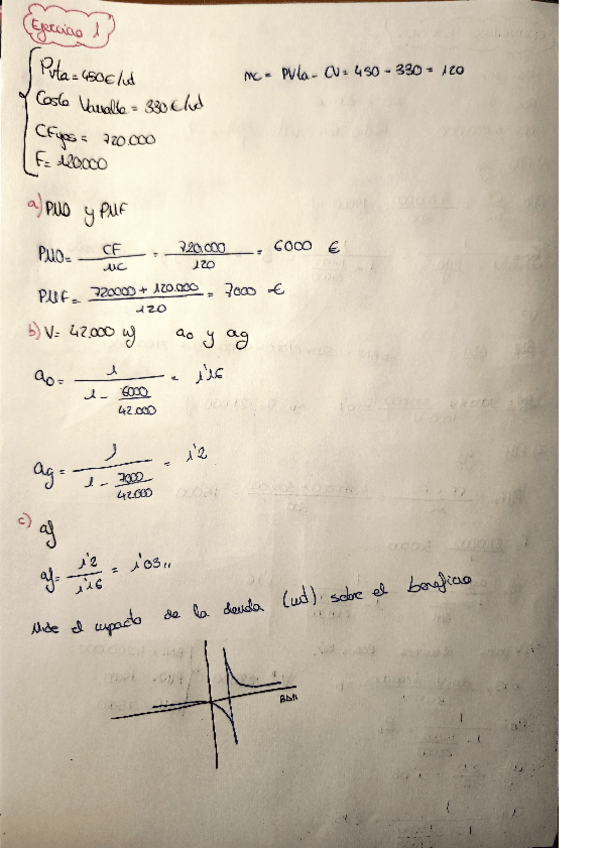 Ejercicio 1
Pvta = 450€/ud
mc = Pvta - CV = 450 - 330 = 120
Costo Variable = 330€/ud
CFijos = 720.000
F = 120.000
a) PMO y PMF
PMO = CF / MC = 720.000 / 120 = 6000 €
PMF = 720000 + 120.000 / 120 = 7000 €
b) V = 42.000 uf ao y ag
ao = 1 / 1 - 6000 / 42.000 = 1'16
ag = 1 / 1 - 7000 / 42000 = 1'2
c) af
af = 1'2 / 1'16 = 1'03,,
Mide el impacto de la deuda (ud) sobre el beneficio